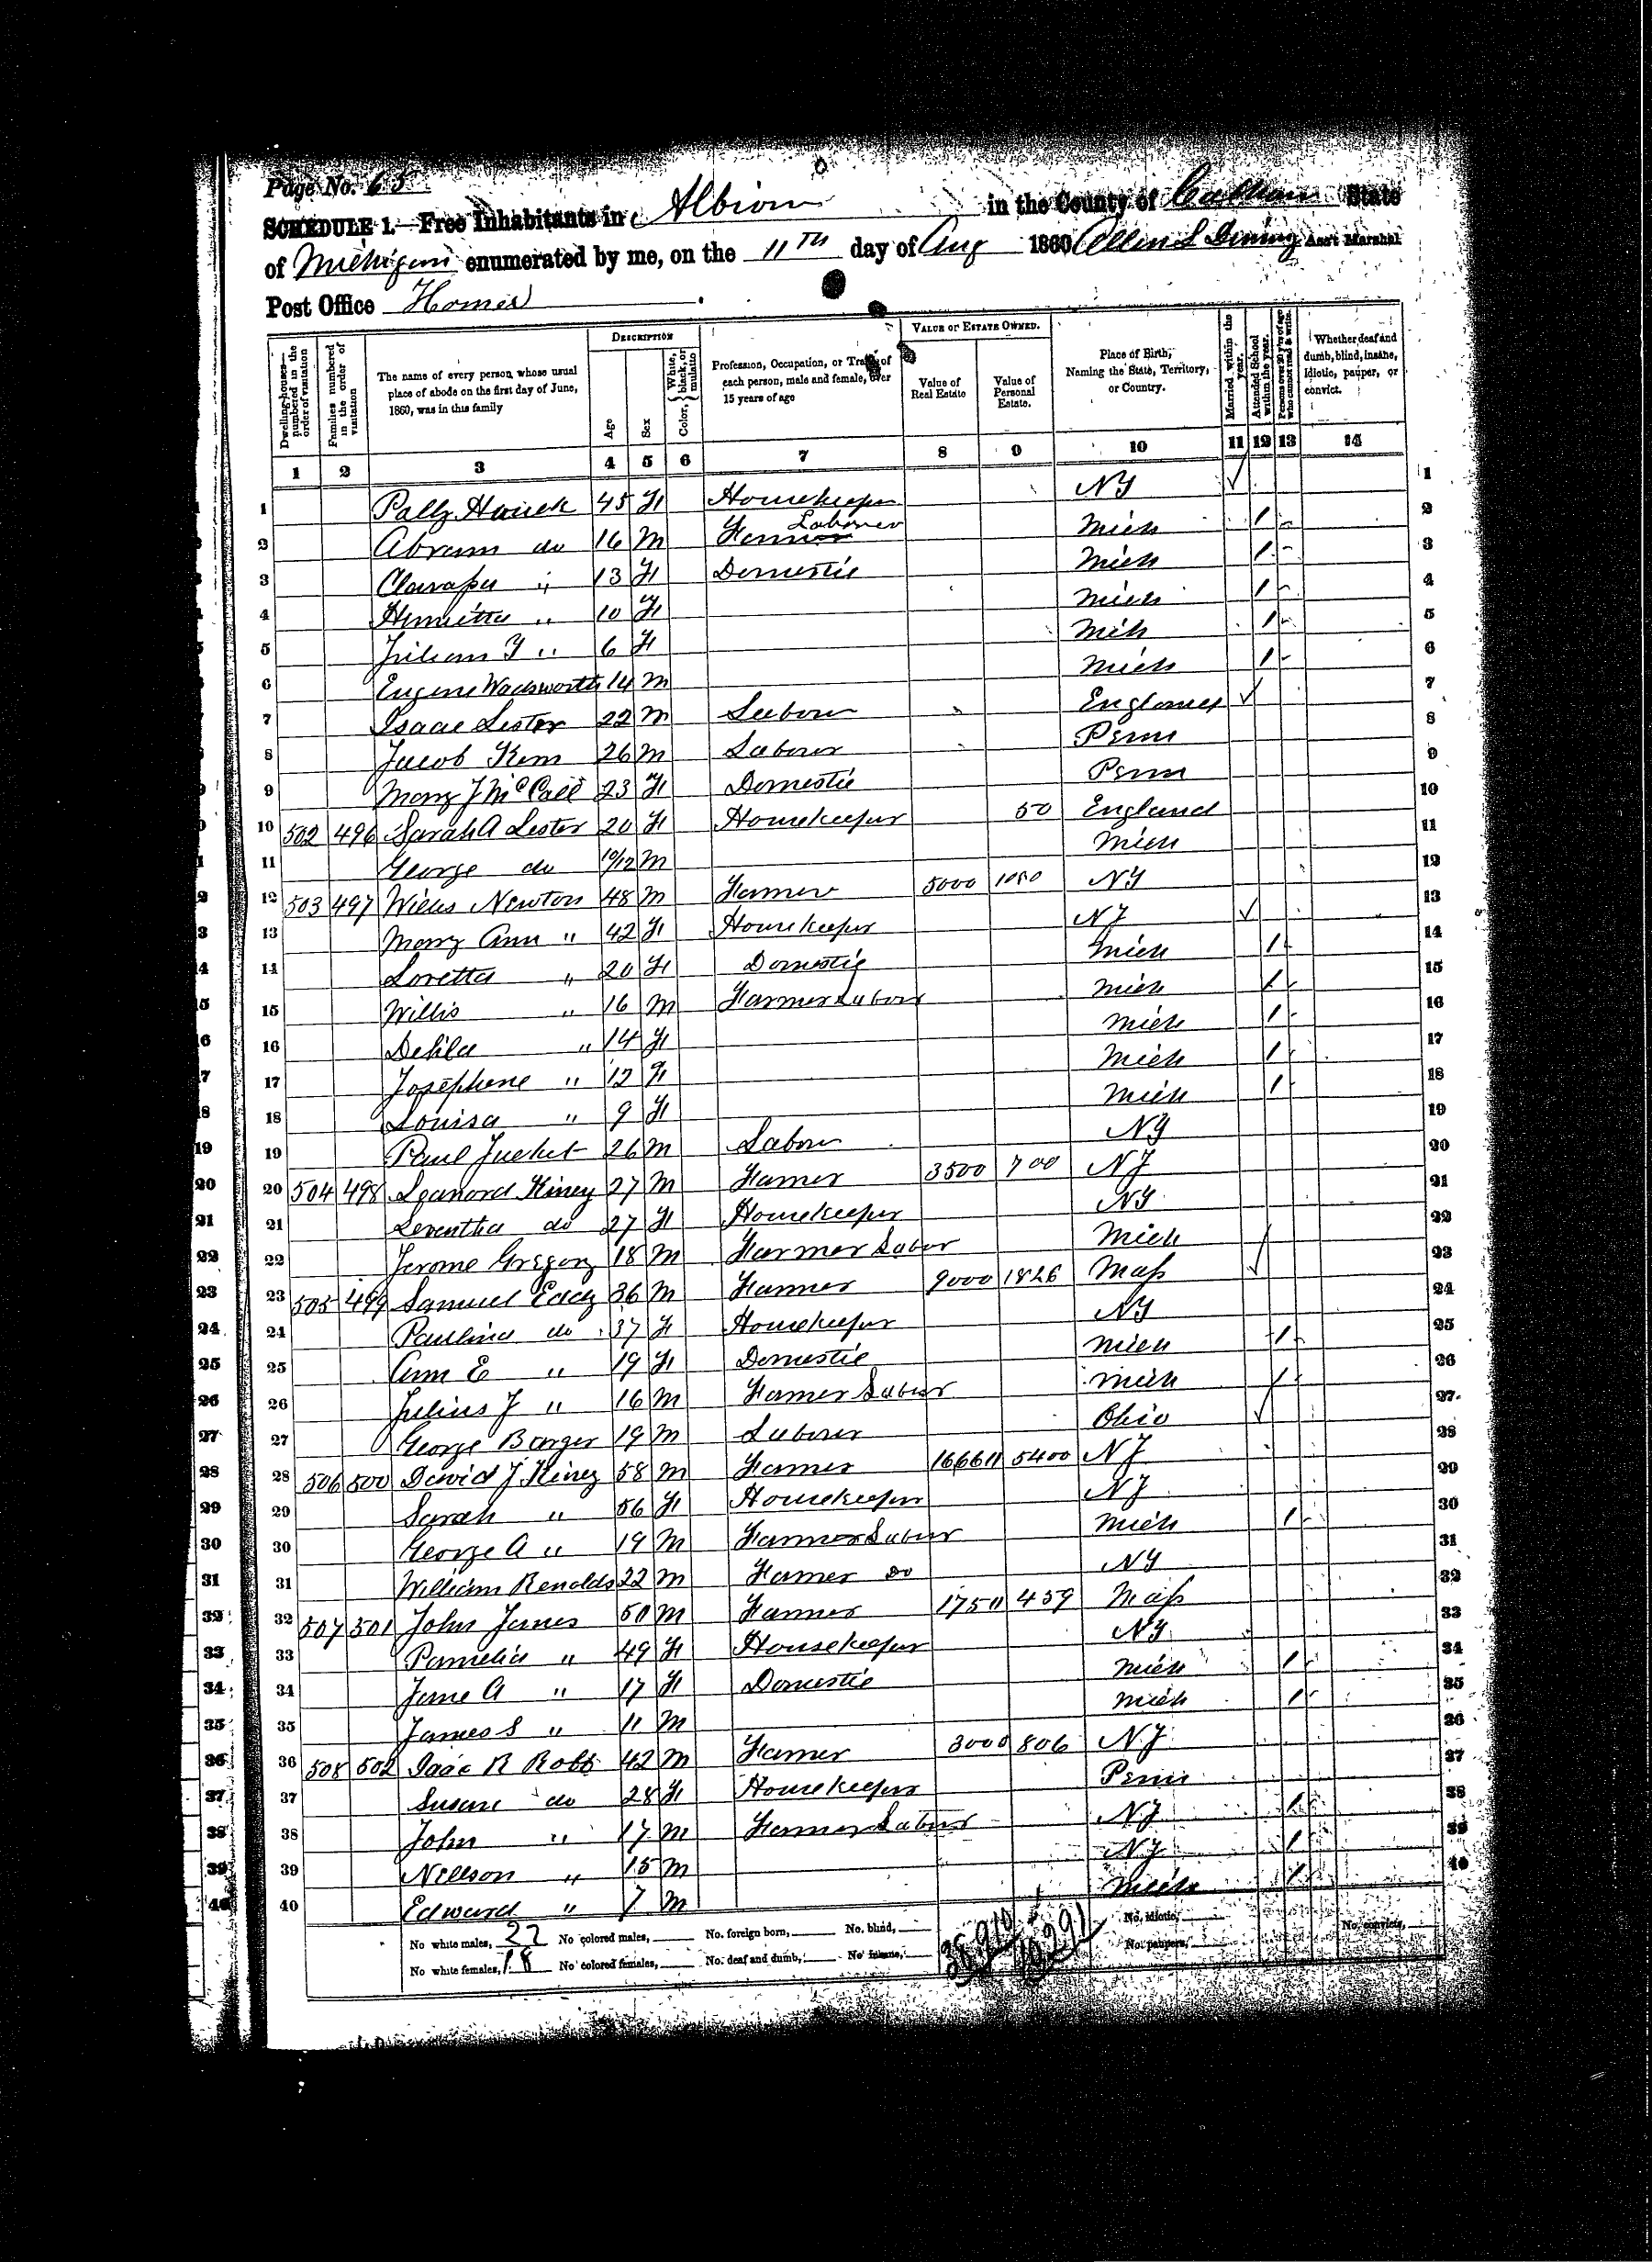 Page No. 65
SCHEDULE 1.—Free Inhabitants in Albion in the County of Calhoun State
of Michigan enumerated by me, on the 11TH day of Aug 1860 Ass't Marshal.
Post Office Homer
Dwelling-houses—numbered in the order of visitation
Families numbered in the order of visitation
The name of every person whose usual place of abode on the first day of June, 1860, was in this family
DESCRIPTION
Age
Sex
Color, White, black, or mulatto
Profession, Occupation, or Trade of each person, male and female, over 15 years of age
VALUE OF ESTATE OWNED.
Value of Real Estate
Value of Personal Estate.
Place of Birth, Naming the State, Territory, or Country.
Married within the year.
Attended School within the year.
Persons over 20 y'rs of age who cannot read & write.
Whether deaf and dumb, blind, insane, idiotic, pauper, or convict.
1 2 3 4 5 6 7 8 9 10 11 12 13 14
1 Polly Houck 45 F Housekeeper NY 1
2 Abram do 16 M Farmer Laborer Mich 1 2
3 13 F Domestic Mich 1 3
4 Henrietta " 10 F Mich 1 4
5 " 6 F Mich 1 5
6 Eugene Wadsworth 14 M Mich 1 6
7 Isaac Lester 22 M Labor England 7
8 Jacob Kern 26 M Laborer Penn 8
9 Mary J McCall 23 F Domestic Penn 9
10 502 496 Sarah A Lester 20 F Housekeeper 50 England 10
11 George do 10/12 M Mich 11
12 503 497 Willis Newton 48 M Farmer 5000 1050 NY 12
13 Mary Ann " 42 F Housekeeper NJ 13
14 Loretta " 20 F Domestic Mich 1 14
15 Willis " 16 M Farmer Labor Mich 1 15
16 Delila " 14 F Mich 1 16
17 Josephene " 12 F Mich 1 17
18 Louisa " 9 F Mich 1 18
19 Paul 26 M Labor NY 19
20 504 498 Leanord Hiney 27 M Farmer 3500 700 NJ 20
21 Leventha do 27 F Housekeeper NY 21
22 Jerome Gregory 18 M Farmer Labor Mich 22
23 505 499 Samuel Eddy 36 M Farmer 9000 1826 Mass 23
24 Paulina do 37 F Housekeeper NY 24
25 Ann E " 19 F Domestic Mich 1 25
26 Julius J " 16 M Farmer Labor Mich 1 26
27 George Barger 19 M Laborer Ohio 27
28 506 500 David J Hiney 58 M Farmer 16660 5400 NJ 28
29 Sarah " 56 F Housekeeper NJ 29
30 George A " 19 M Farmer Labor Mich 1 30
31 William Renolds 22 M Farmer Do NY 31
32 507 501 John Janes 50 M Farmer 1750 459 Mass 32
33 Pamelia " 49 F Housekeeper NY 33
34 Jane A " 17 F Domestic Mich 1 34
35 James S " 11 M Mich 1 35
36 508 502 Isaac R Robb 42 M Farmer 3000 806 NJ 36
37 Susan do 28 F Housekeeper Penn 37
38 John " 17 M Farmer Labor NJ 1 38
39 Nellson " 15 M NJ 1 39
40 Edward " 7 M Mich 1 40
No white males, 22 No colored males, No. foreign born, No. blind, No. idiotic, No. convicts,
No white females, 18 No colored females, No. deaf and dumb, No insane, No. paupers,